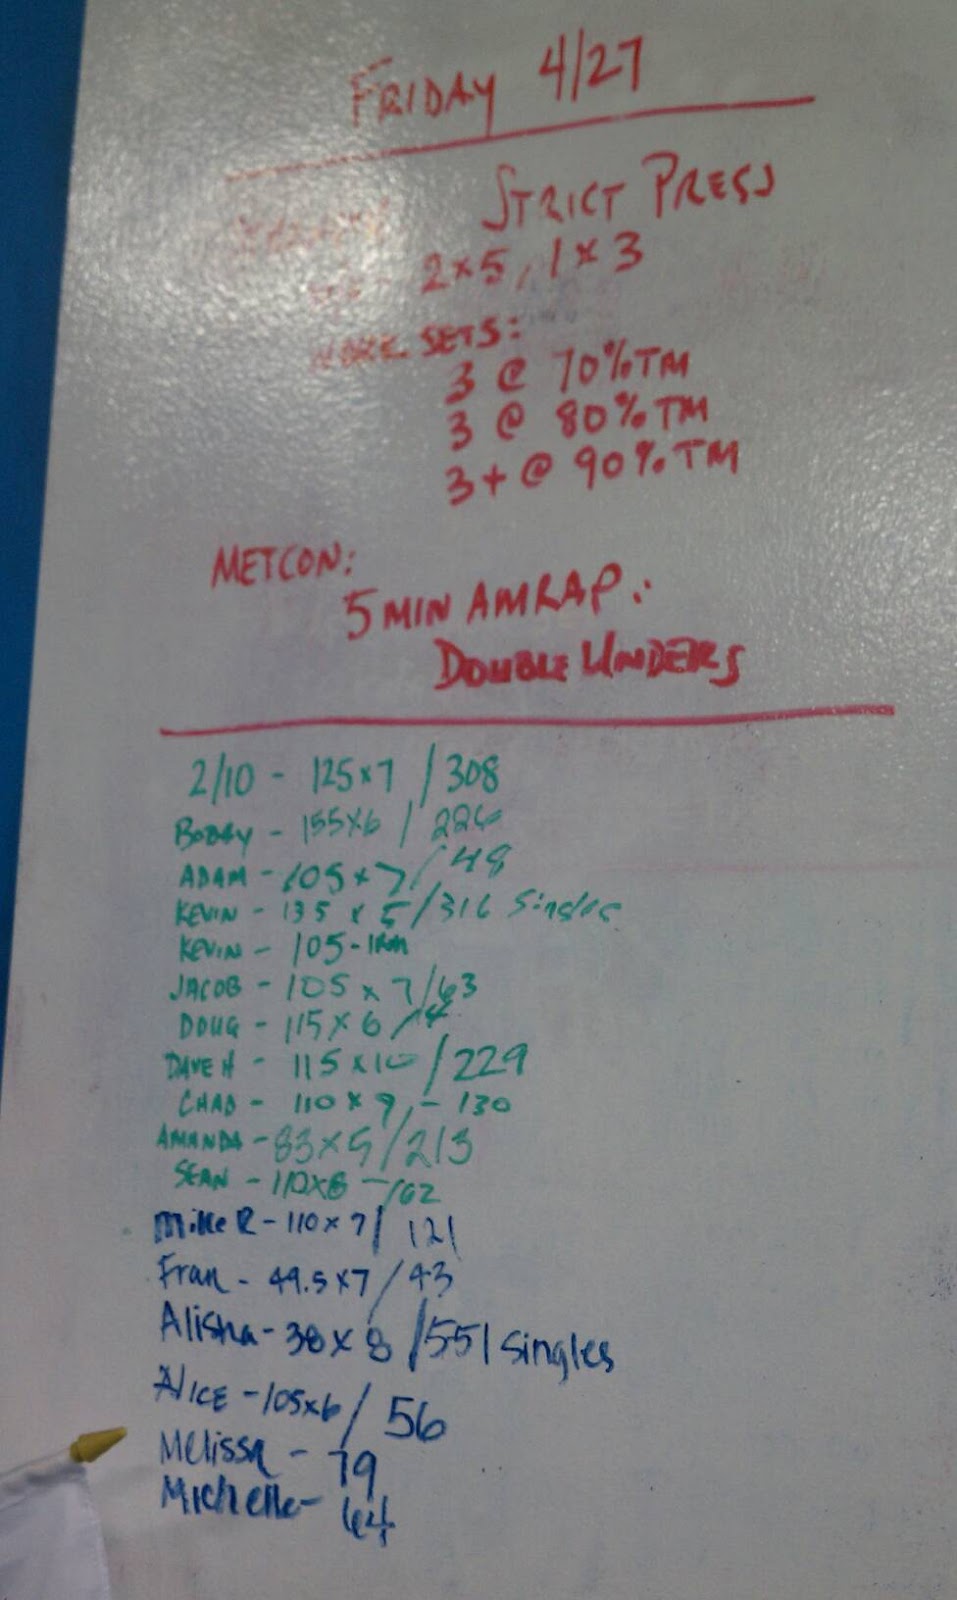 FRIDAY 4/27
STRICT PRESS
2x5, 1x3
WORK SETS:
3 @ 70% TM
3 @ 80% TM
3+ @ 90% TM
METCON:
5 MIN AMRAP:
DOUBLE UNDERS
2/10 - 125x7 / 308
BOBBY - 155x6 / 226
ADAM - 105x7 / 48
KEVIN - 135 x 5 / 316 Singles
KEVIN - 105 - 1RM
JACOB - 105 x 7 / 63
DOUG - 115x6 /
DAVE H - 115x10 / 229
CHAD - 110x9 - 130
AMANDA - 83x5 / 213
SEAN - 110x8 - 162
Mike R - 110x7 / 121
Fran - 49.5x7 / 43
Alisha - 38x8 / 551 Singles
ALICE - 105x6 / 56
Melissa - 79
Michelle - 64